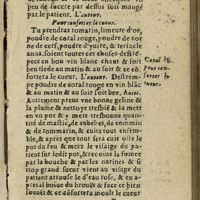 peu de succre par dessus soit mangé
par le patient. L'auteur.
Pour conforter le cueur.
Tu prendras romarin, limeure d'or,
pouldre de coral rouge, pouldre de cor
ne de cerf, pouldre d'yuire, & serin le
anna. soient toutes ces choses destrē-
pees en bon vin blanc chaut & soit
beu tiede au matin & au soir & ce cō-
fortera le cueur. L'auteur. Destrem-
pe pouldre de coral rouge en vin blāc
& au matin & au soir soit beu. Autre.
Tout premierement veue bonne geline &
la plume & nettoye tresbiē & la mets
en vng pot, puis y mets trente grains
de mastic, de cubebes, & de commin
& de tormatin, & cuits tout ensem-
ble, & apres que tout sera cuit oste le
pot du feu & mets le visaige du pa-
tient sur ledit pot, & receoiue la fumee
par la bouche & par les narines & si
trop grand sueur vient au visage du
patient arrouse le d'eau rose, & en a-
pres il boiue du brouët & face ce bien
souuēt & ce cōfortera moult le cueur
Coral
pour con-
forter le
cueur.